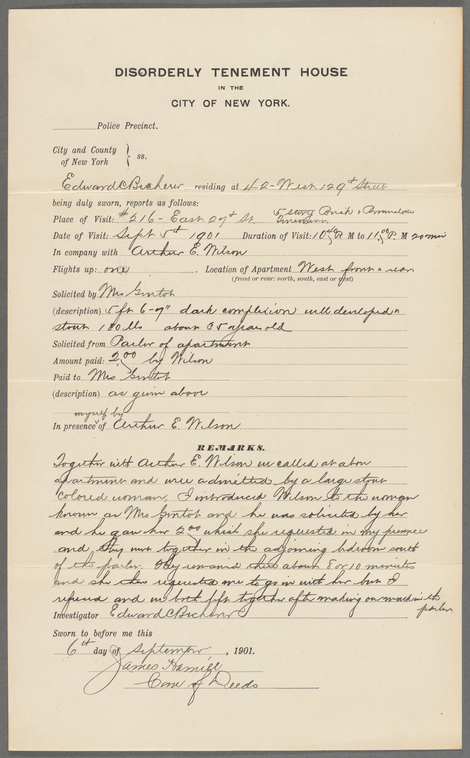 DISORDERLY TENEMENT HOUSE
IN THE
CITY OF NEW YORK.
Police Precinct.
City and County of New York } ss.
Edward C Becherer residing at 42 - West 129th Street
being duly sworn, reports as follows:
Place of Visit: #216 - East 29th St. 5 story Brick & Brownstone
Date of Visit: Sept 5th 1901 Duration of Visit: 10 40 P. M to 11 00 P. M 20 min
In company with Arthur E. Wilson
Flights up: one. Location of Apartment West front & rear
(front or rear: north, south, east or west)
Solicited by Mrs
(description) 5 ft 6-7" dark complexion well developed &
stout 180 lbs about 35 years old
Solicited from Parlor of apartment
Amount paid: 2 00 by Wilson
Paid to Mrs
(description) as given above
myself by
In presence of Arthur E. Wilson
REMARKS.
Together with Arthur E. Wilson we called at above
apartment and were admitted by a large stout
colored woman, I introduced Wilson to the woman
known as Mrs and he was solicited by her
and he gave her 2 00 which she requested in my presence
and they went together in the adjoining bedroom south
of the parlor. They remained there about 8 or 10 minutes
and she then requested me to go in with her but I
refused and we both left together after making our with
parlor
Investigator Edward C Becherer
Sworn to before me this
6th day of September, 1901.
James Hamill
Com of Deeds